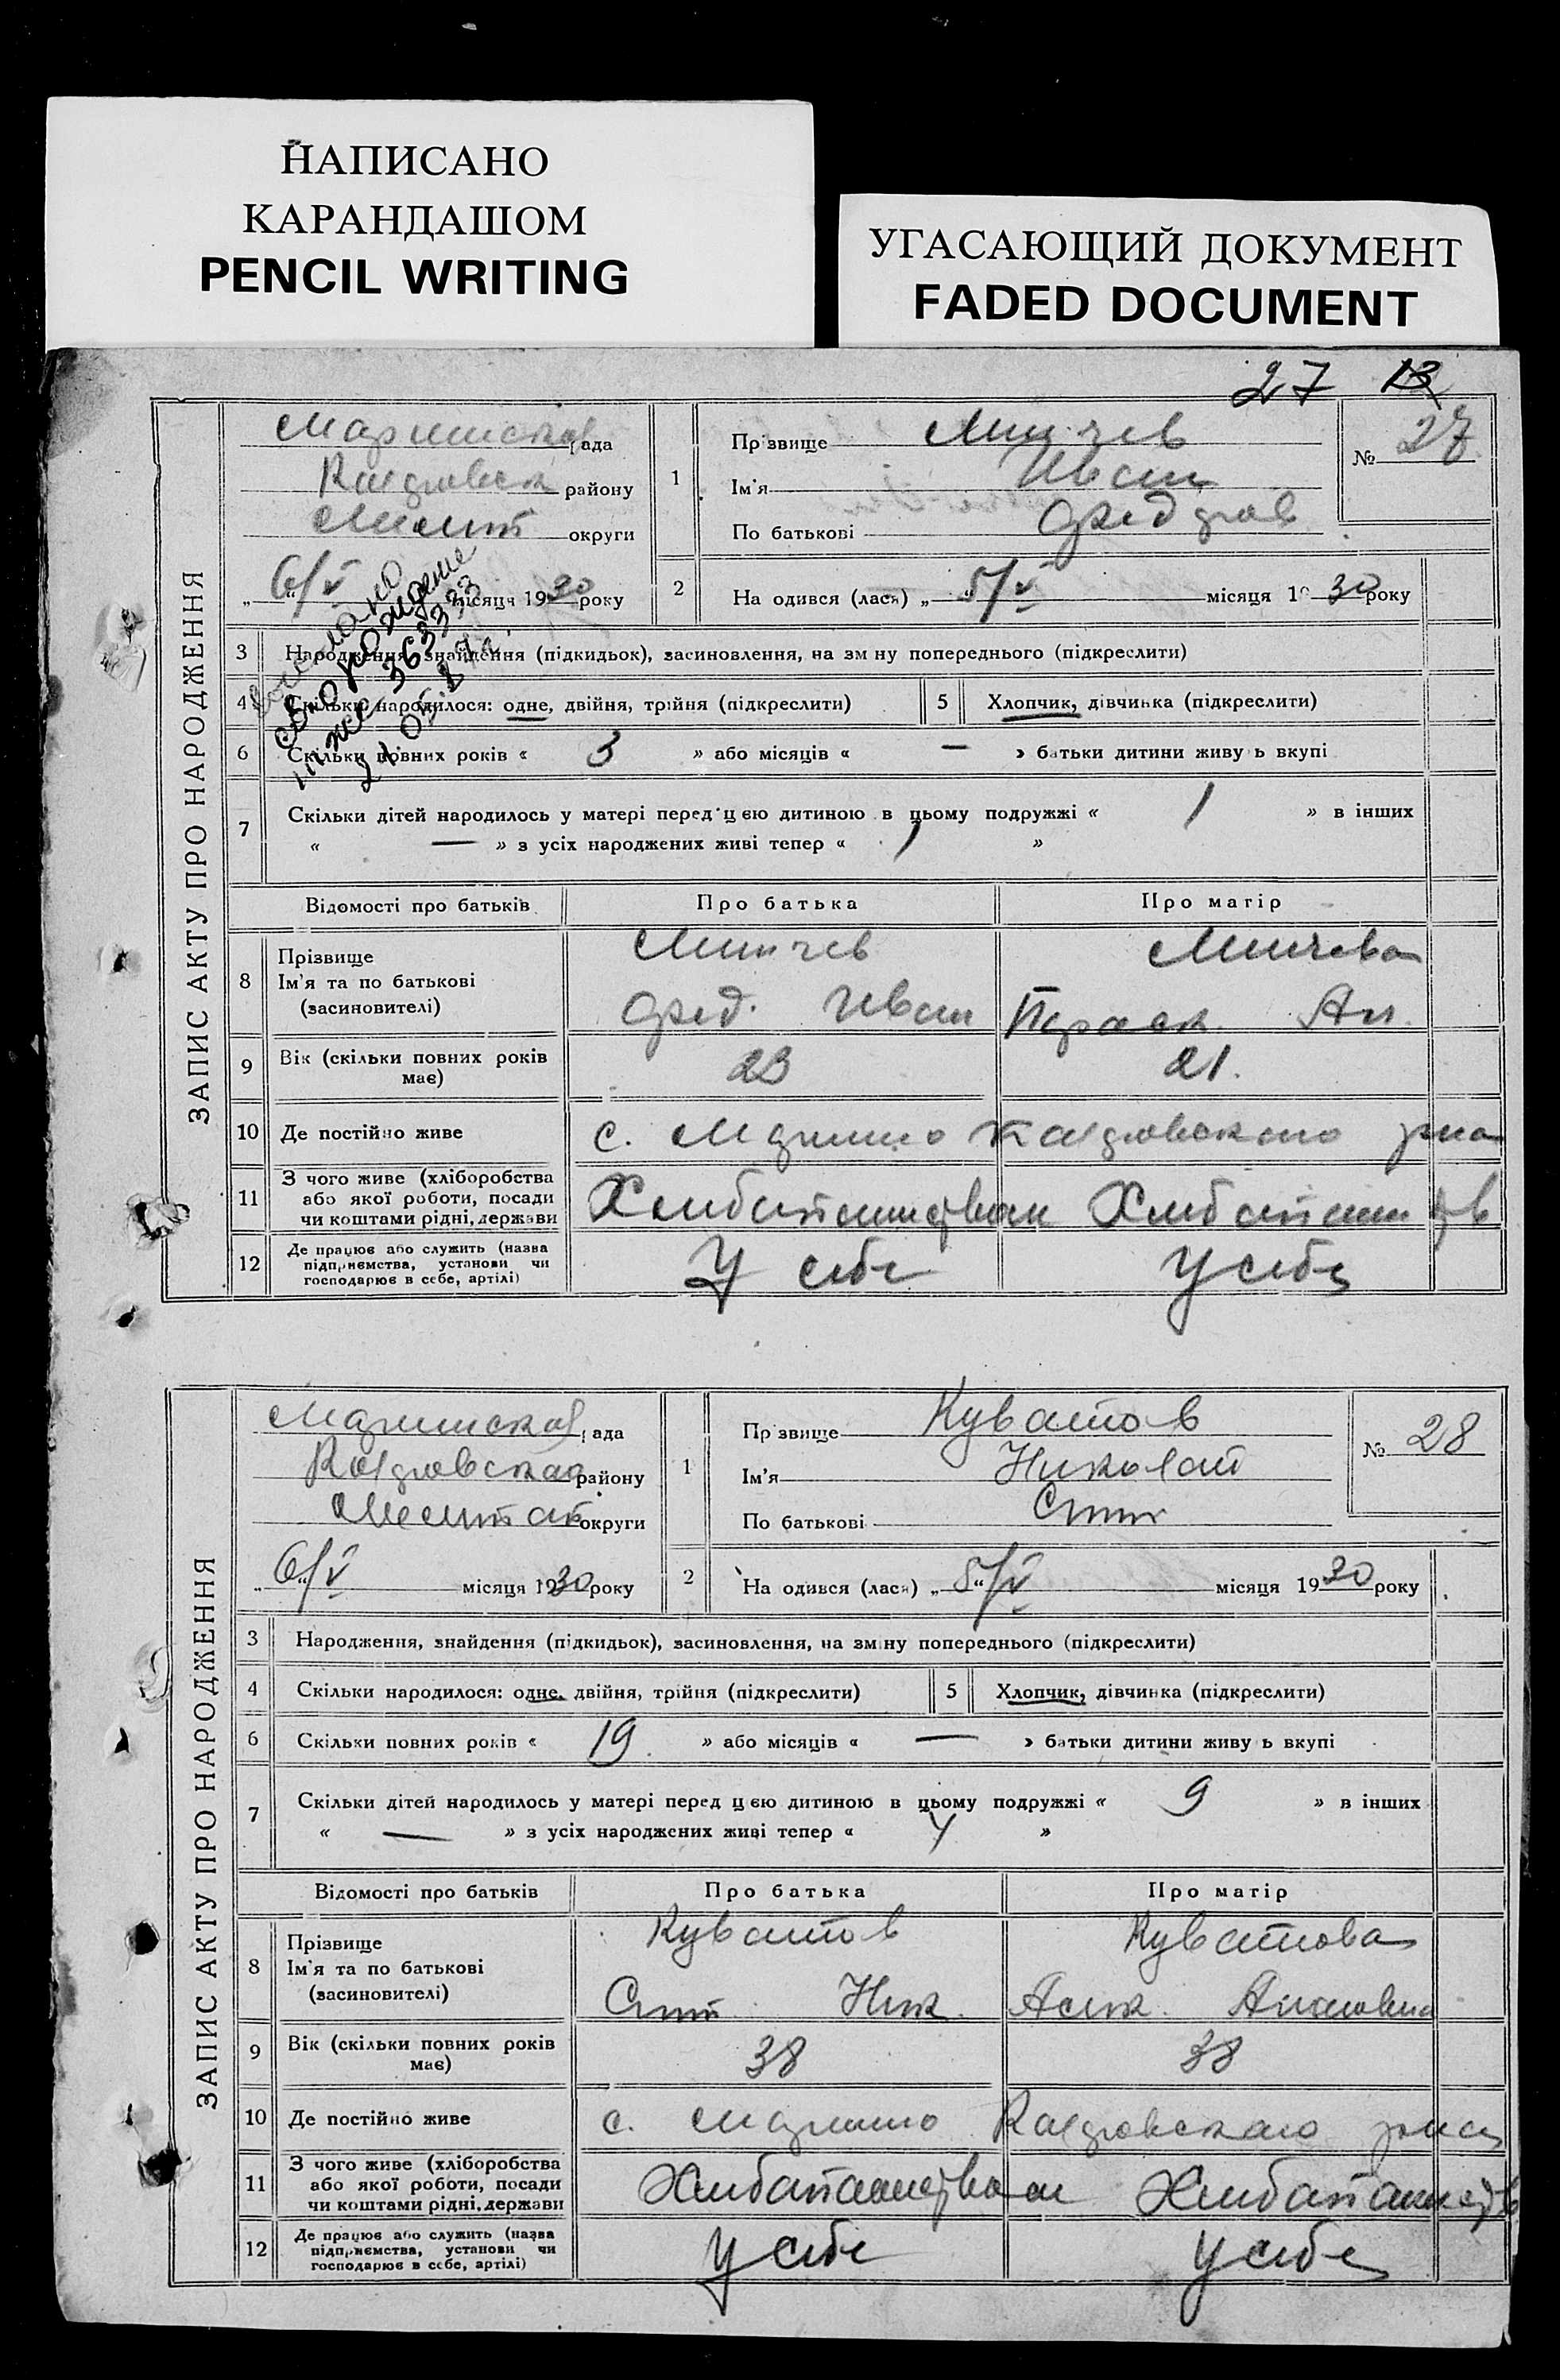 НАПИСАНО
КАРАНДАШОМ
PENCIL WRITING
УГАСАЮЩИЙ ДОКУМЕНТ
FADED DOCUMENT
27 13
ЗАПИС АКТУ ПРО НАРОДЖЕННЯ
рада
району
округи
6/V місяця 1930 року
1 Прізвище Минчев
Ім'я Иван
По батькові Федоров
№ 27
2 На одився (лася) „ 5/V місяця 1930 року
3 Народження, знайдення (підкидьок), засиновлення, на зм ну попереднього (підкреслити)
4 Скільки народилося: одне, двійня, трійня (підкреслити) 5 Хлопчик, дівчинка (підкреслити)
6 Скільки повних років « 3 » або місяців « — » батьки дитини живу ь вкупі
7 Скільки дітей народилось у матері перед цею дитиною в цьому подружжі « 1 » в інших
« — » з усіх народжених живі тепер « 1 »
Відомості про батьків Про батька Про матір
8 Прізвище Минчев Минчева
Ім'я та по батькові
(засиновителі) Фед. Иван Параск. Ан.
9 Вік (скільки повних років має) 23 21.
10 Де постійно живе с.
11 З чого живе (хліборобства
або якої роботи, посади
чи коштами рідні, держави
12 Де працює або служить (назва
підприємства, установи чи
господарює в себе, артілі) У себе У себе
ЗАПИС АКТУ ПРО НАРОДЖЕННЯ
рада
району
округи
6/V місяця 1930 року
1 Прізвище Куватов
Ім'я Николай
По батькові
№ 28
2 На одився (лася) „ 5/V місяця 1930 року
3 Народження, знайдення (підкидьок), засиновлення, на зміну попереднього (підкреслити)
4 Скільки народилося: одне, двійня, трійня (підкреслити) 5 Хлопчик, дівчинка (підкреслити)
6 Скільки повних років « 19. » або місяців « — » батьки дитини живу ь вкупі
7 Скільки дітей народилось у матері перед цею дитиною в цьому подружжі « 9 » в інших
« — » з усіх народжених живі тепер « 4 »
Відомості про батьків Про батька Про матір
8 Прізвище Куватов Куватова
Ім'я та по батькові
(засиновителі) Ник.
9 Вік (скільки повних років має) 38 38
10 Де постійно живе с.
11 З чого живе (хліборобства
або якої роботи, посади
чи коштами рідні, держави
12 Де працює або служить (назва
підприємства, установи чи
господарює в себе, артілі) У себе У себе